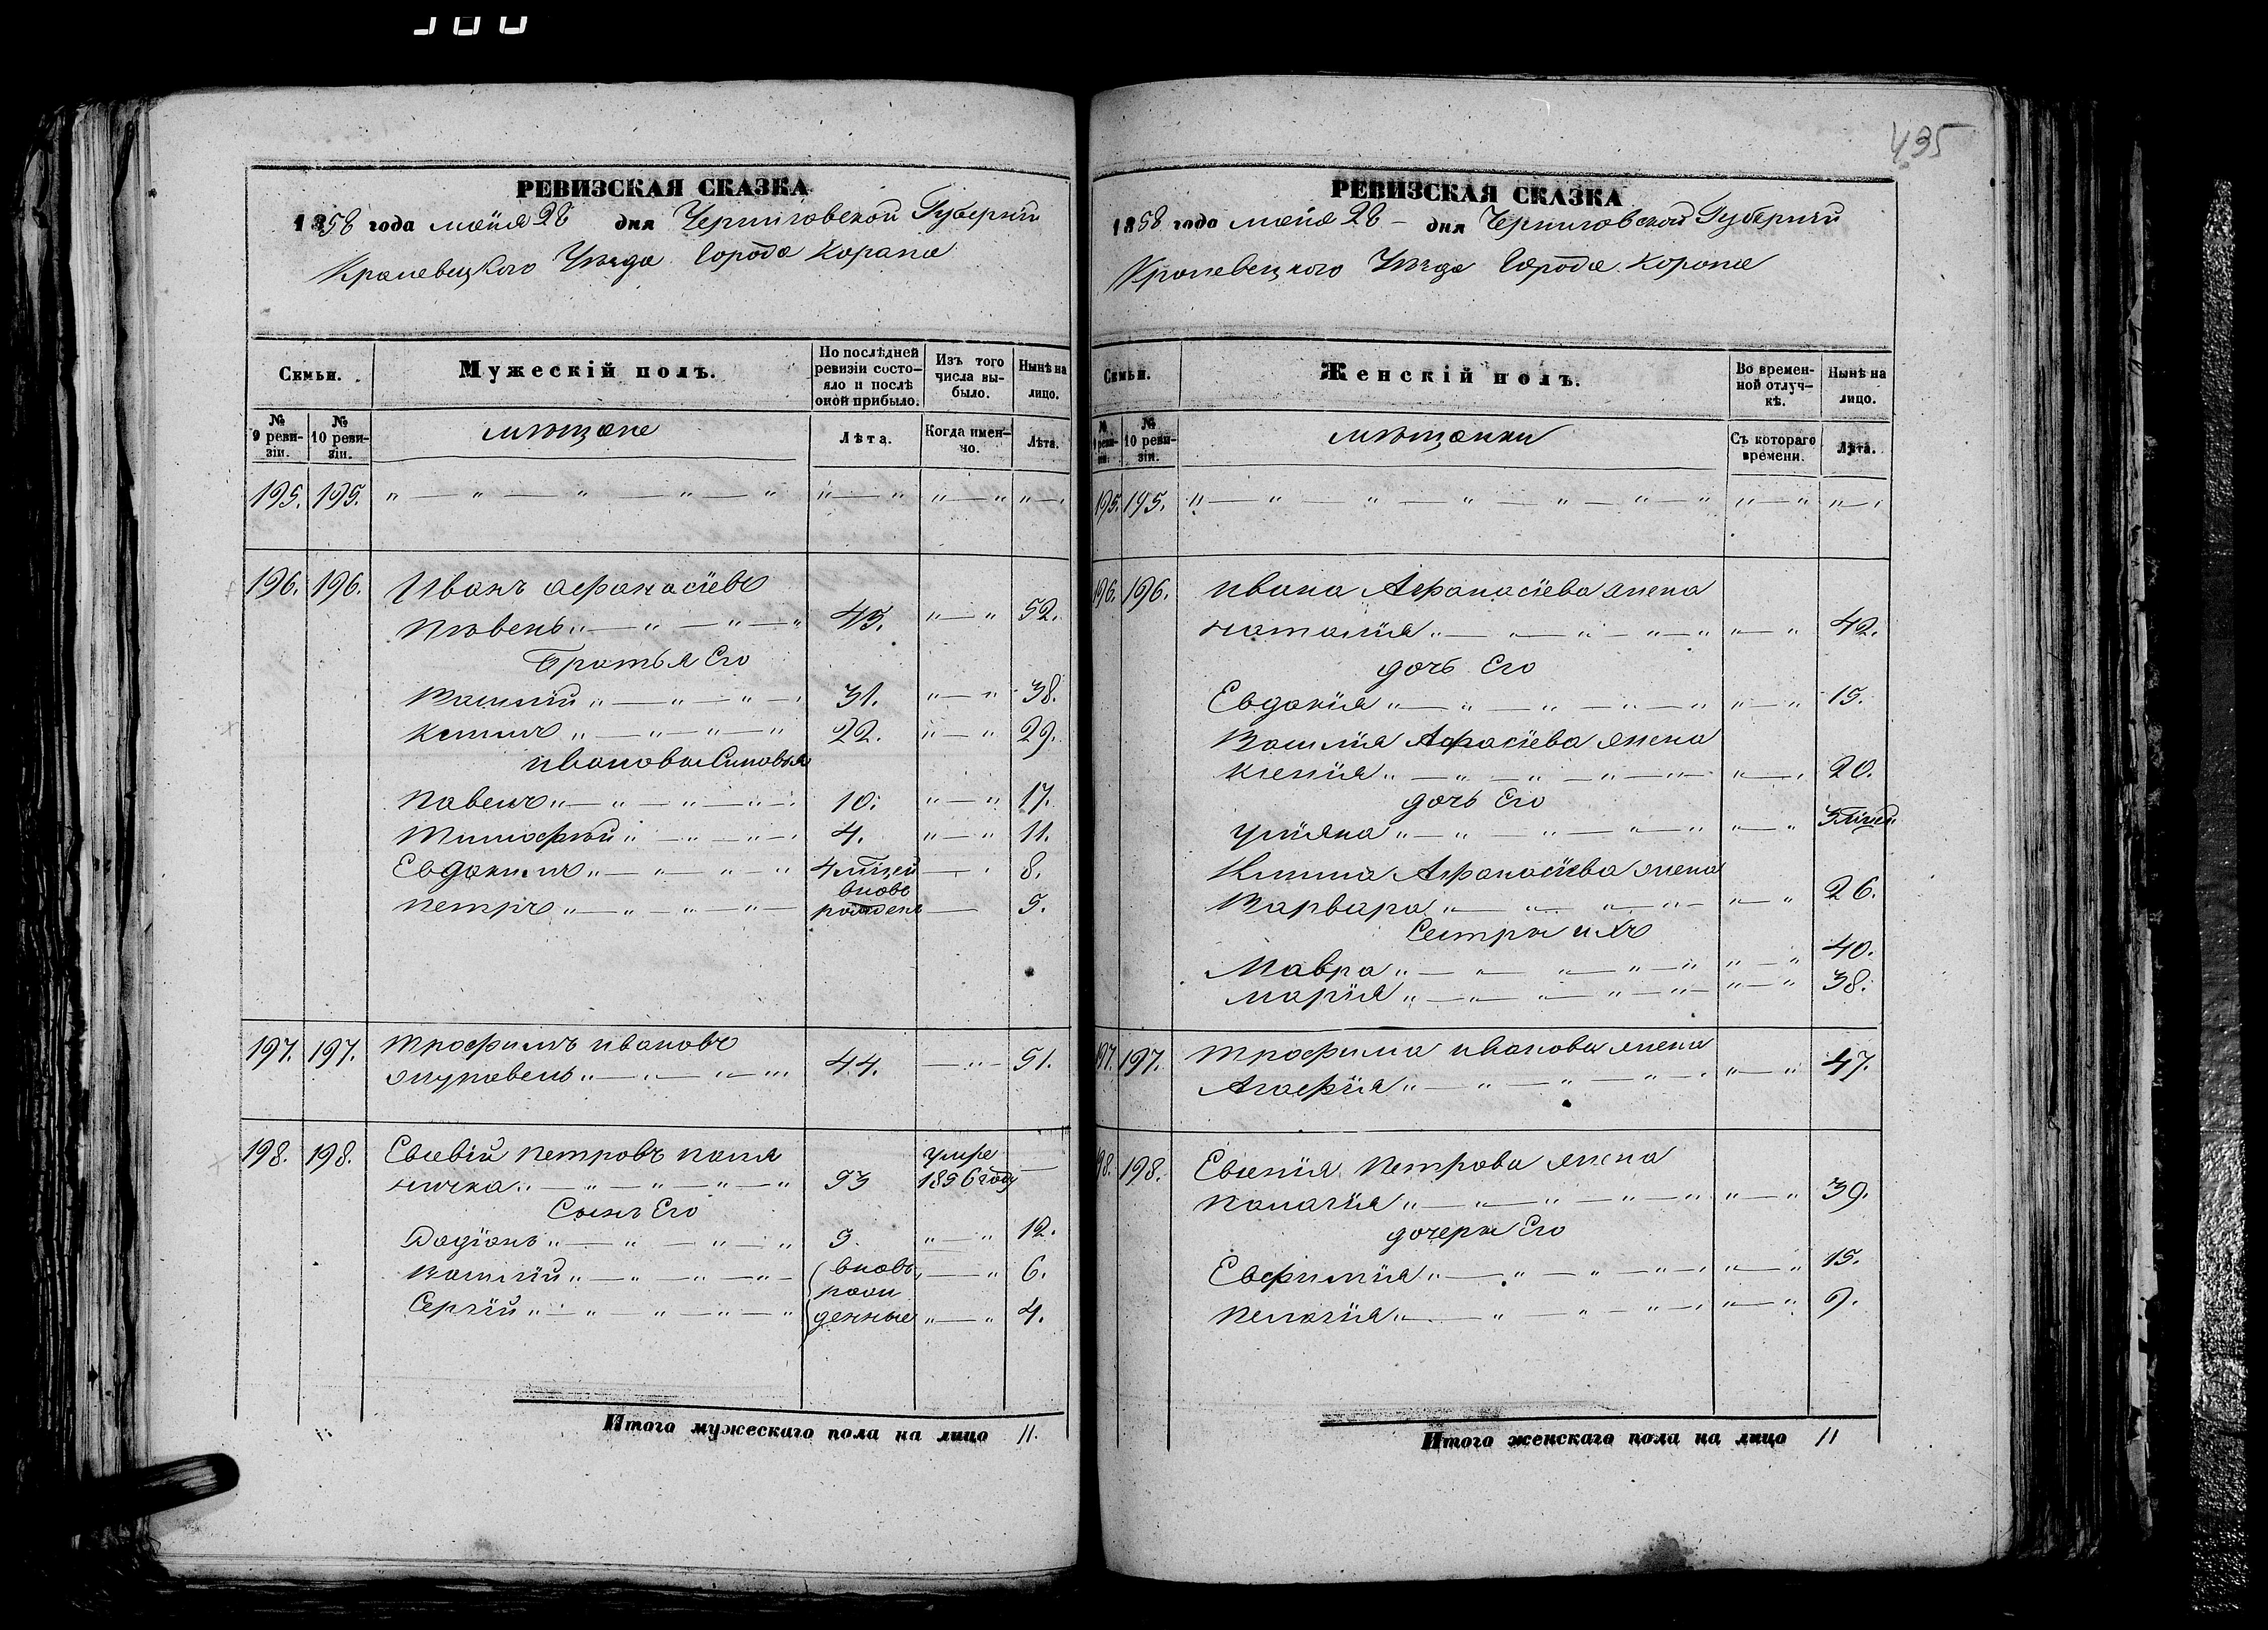 435
РЕВИЗСКАЯ СКАЗКА
1858 года маия 28 дня Черниговской Губернии
Кролевецкого Уезда Города Коропа
Семьи. Мужескій полъ. По послѣдней ревизіи состояло и послѣ оной прибыло. Изъ того числа выбыло. Нынѣ на лицо.
№ 9 ревизіи. № 10 ревизіи. мѣщане Лѣта. Когда именно. Лѣта.
195. 195. " — " — " — " — " " — " " — " " — "
196. 196. Иванъ Афанасіевъ
Пѣвень " — " — " — " 45. " — " 52.
Братья Его
Василій " — " — " — " 31. " — " 38.
Климъ " — " — " — " 22. " — " 29.
Ивановы Сыновья
Павелъ " — " — " — " 10. " — " 17.
Тимофѣй " — " — " — " 4. " — " 11.
Евдокимъ " — " — " — " 4 месц. — " 8.
Петръ " — " — " — " вновь рожденъ — 5.
197. 197. Трофимъ Ивановъ
Журавель " — " — " — " 44. — " — 51.
198. 198. Евсевій Петровъ Пали
ничка " — " — " — " — " 53 умре 1856 году —
Сынъ Его
Родіонъ " — " — " — " 5. " — " 12.
Василій " — " — " — " вновь " — " 6.
рож
Сергій " — " — " — " денные " — " 4.
Итого мужескаго пола на лицо 11.
РЕВИЗСКАЯ СКАЗКА
1858 года маия 28 — дня Черниговской Губернии
Кролевецкого Уезда Города Коропа
Семьи. Женскій полъ. Во временной отлучкѣ. Нынѣ на лицо.
№ 9 ревизіи. № 10 ревизіи. мѣщанки Съ котораго времени. Лѣта.
195. 195. " — " — " — " — " — " — " " — " " — "
196. 196. Ивана Афанасіева жена
Наталія " — " — " — " — " " — " 42.
дочь Его
Евдокія " — " — " — " — " " — " 15.
Василія Афанасіева жена
Ксенія " — " — " — " — " " — " 20.
дочь Его
Уліяна " — " — " — " — " " — " 3 месц.
Клима Афанасіева жена
Варвара " — " — " — " " — " 26.
Сестры ихъ
Мавра " — " — " — " — " " — " 40.
Марія " — " — " — " — " " — " 38.
197. 197. Трофима Иванова жена
Агафія " — " — " — " — " " — " 47.
198. 198. Евсевія Петрова жена
Палагія " — " — " — " — " " — " 39.
дочеры Его
Евфимія " — " — " — " — " " — " 15.
Пелагія " — " — " — " — " " — " 9.
Итого женскаго пола на лицо 11